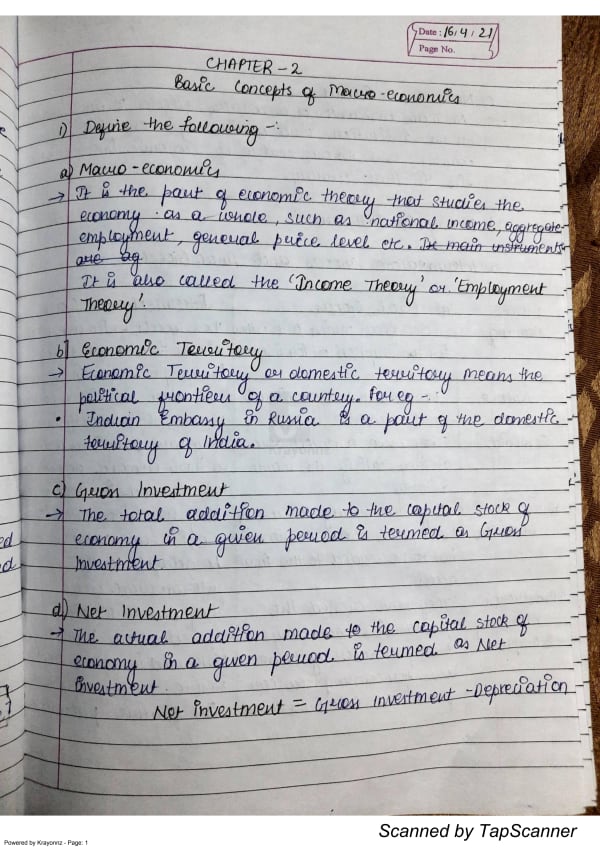 Date: 16.4.21
Page No.
CHAPTER - 2
Basic Concepts of Macro-economics
i) Define the following -:
a) Macro-economics
→ It is the part of economic theory that studies the
economy as a whole, such as national income, aggregate
employment, general price level etc. The main instruments
are ag
It is also called the 'Income Theory' or 'Employment
Theory'.
b) Economic Territory
→ Economic Territory or domestic territory means the
political frontiers of a country. For eg -.
• Indian Embassy in Russia is a part of the domestic
territory of India.
c) Gross Investment
→ The total addition made to the capital stock of
economy in a given period is termed as Gross
Investment
d) Net Investment
→ The actual addition made to the capital stock of
economy in a given period is termed as Net
investment.
Net investment = Gross investment - Depreciation
ed
d
Powered by Krayonnz - Page: 1
Scanned by TapScanner